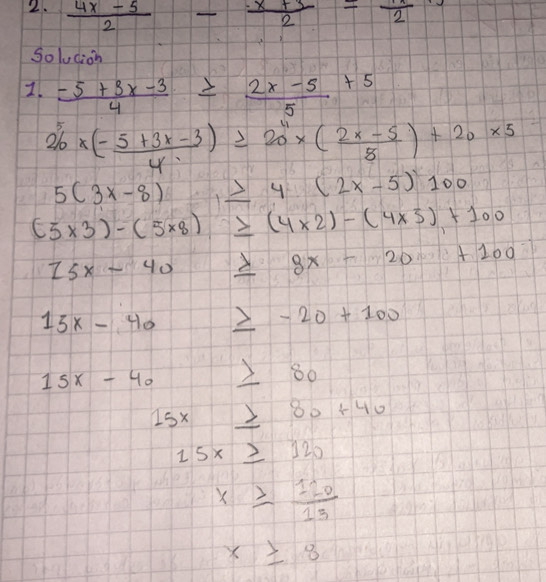 2. 4x - 5 / 2 - x + 3 / 2 = / 2
Solución
1. -5 + 3x - 3 / 4 ≥ 2x - 5 / 5 + 5
20 x (-5 + 3x - 3 / 4) ≥ 20 x (2x - 5 / 5) + 20 x 5
5(3x - 8) ≥ 4 (2x - 5) 100
(5x3) - (5x8) ≥ (4x2) - (4x5) + 100
15x - 40 ≥ 8x - 20 + 100
15x - 40 ≥ -20 + 100
15x - 40 ≥ 80
15x ≥ 80 + 40
15x ≥ 120
x ≥ 120 / 15
x ≥ 8